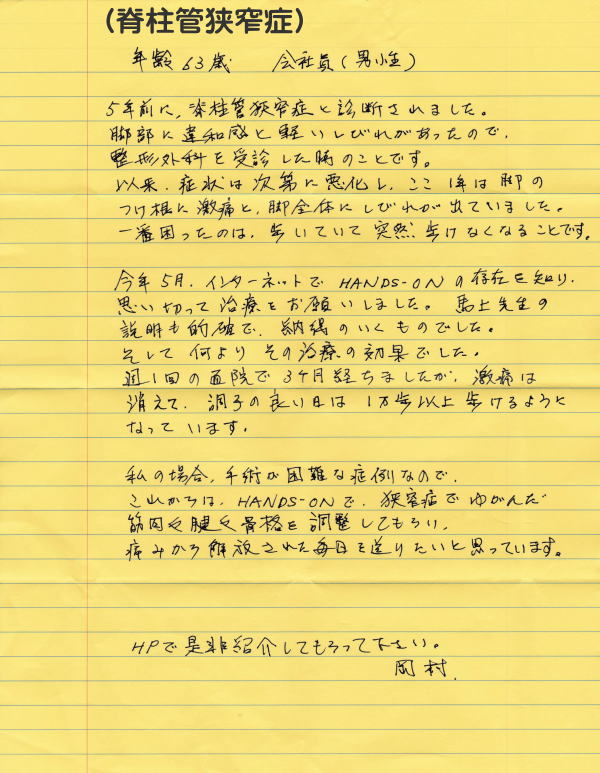 (脊柱管狭窄症)
年齢 63歳 会社員(男性)
5年前に、脊柱管狭窄症と診断されました。
脚部に違和感と軽いしびれがあったので、
整形外科を受診した時のことです。
以来、症状は次第に悪化し、ここ1年は脚の
つけ根に激痛と、脚全体にしびれが出ていました。
一番困ったのは、歩いていて突然歩けなくなることです。
今年5月、インターネットでHANDS-ONの存在を知り、
思い切って治療をお願いしました。馬上先生の
説明も的確で、納得のいくものでした。
そして何よりその治療の効果でした。
週1回の通院で3ケ月経ちましたが、激痛は
消えて、調子の良い日は1万歩以上歩けるように
なっています。
私の場合、手術が困難な症例なので、
これからは、HANDS-ONで、狭窄症でゆがんだ
筋肉や腱や骨格を調整してもらい、
痛みから解放された毎日を送りたいと思っています。
HPで是非紹介してもらって下さい。
岡村